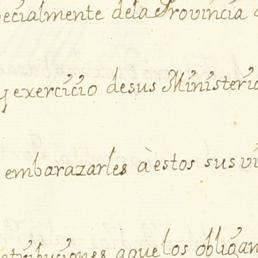 pecialmente dela Provincia
y exercicio desus Ministerio
embarazarles à estos sus vi
tribuciones aquelos obligan